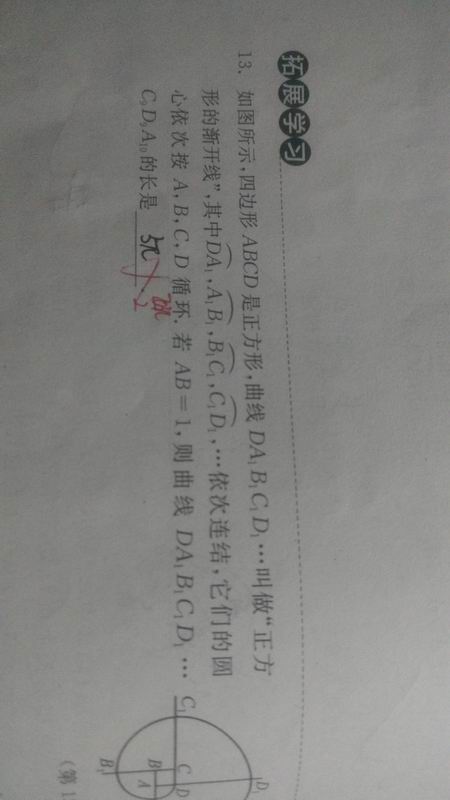 拓展学习
13. 如图所示,四边形 ABCD 是正方形,曲线 DA₁B₁C₁D₁…叫做“正方
形的渐开线”,其中DA₁,A₁B₁,B₁C₁,C₁D₁,…依次连结,它们的圆
心依次按 A,B,C,D 循环. 若 AB=1,则曲线 DA₁B₁C₁D₁…
C₉D₉A₁₀的长是 5π
C₁
D₁
C
D
B
A
B₁
(第1